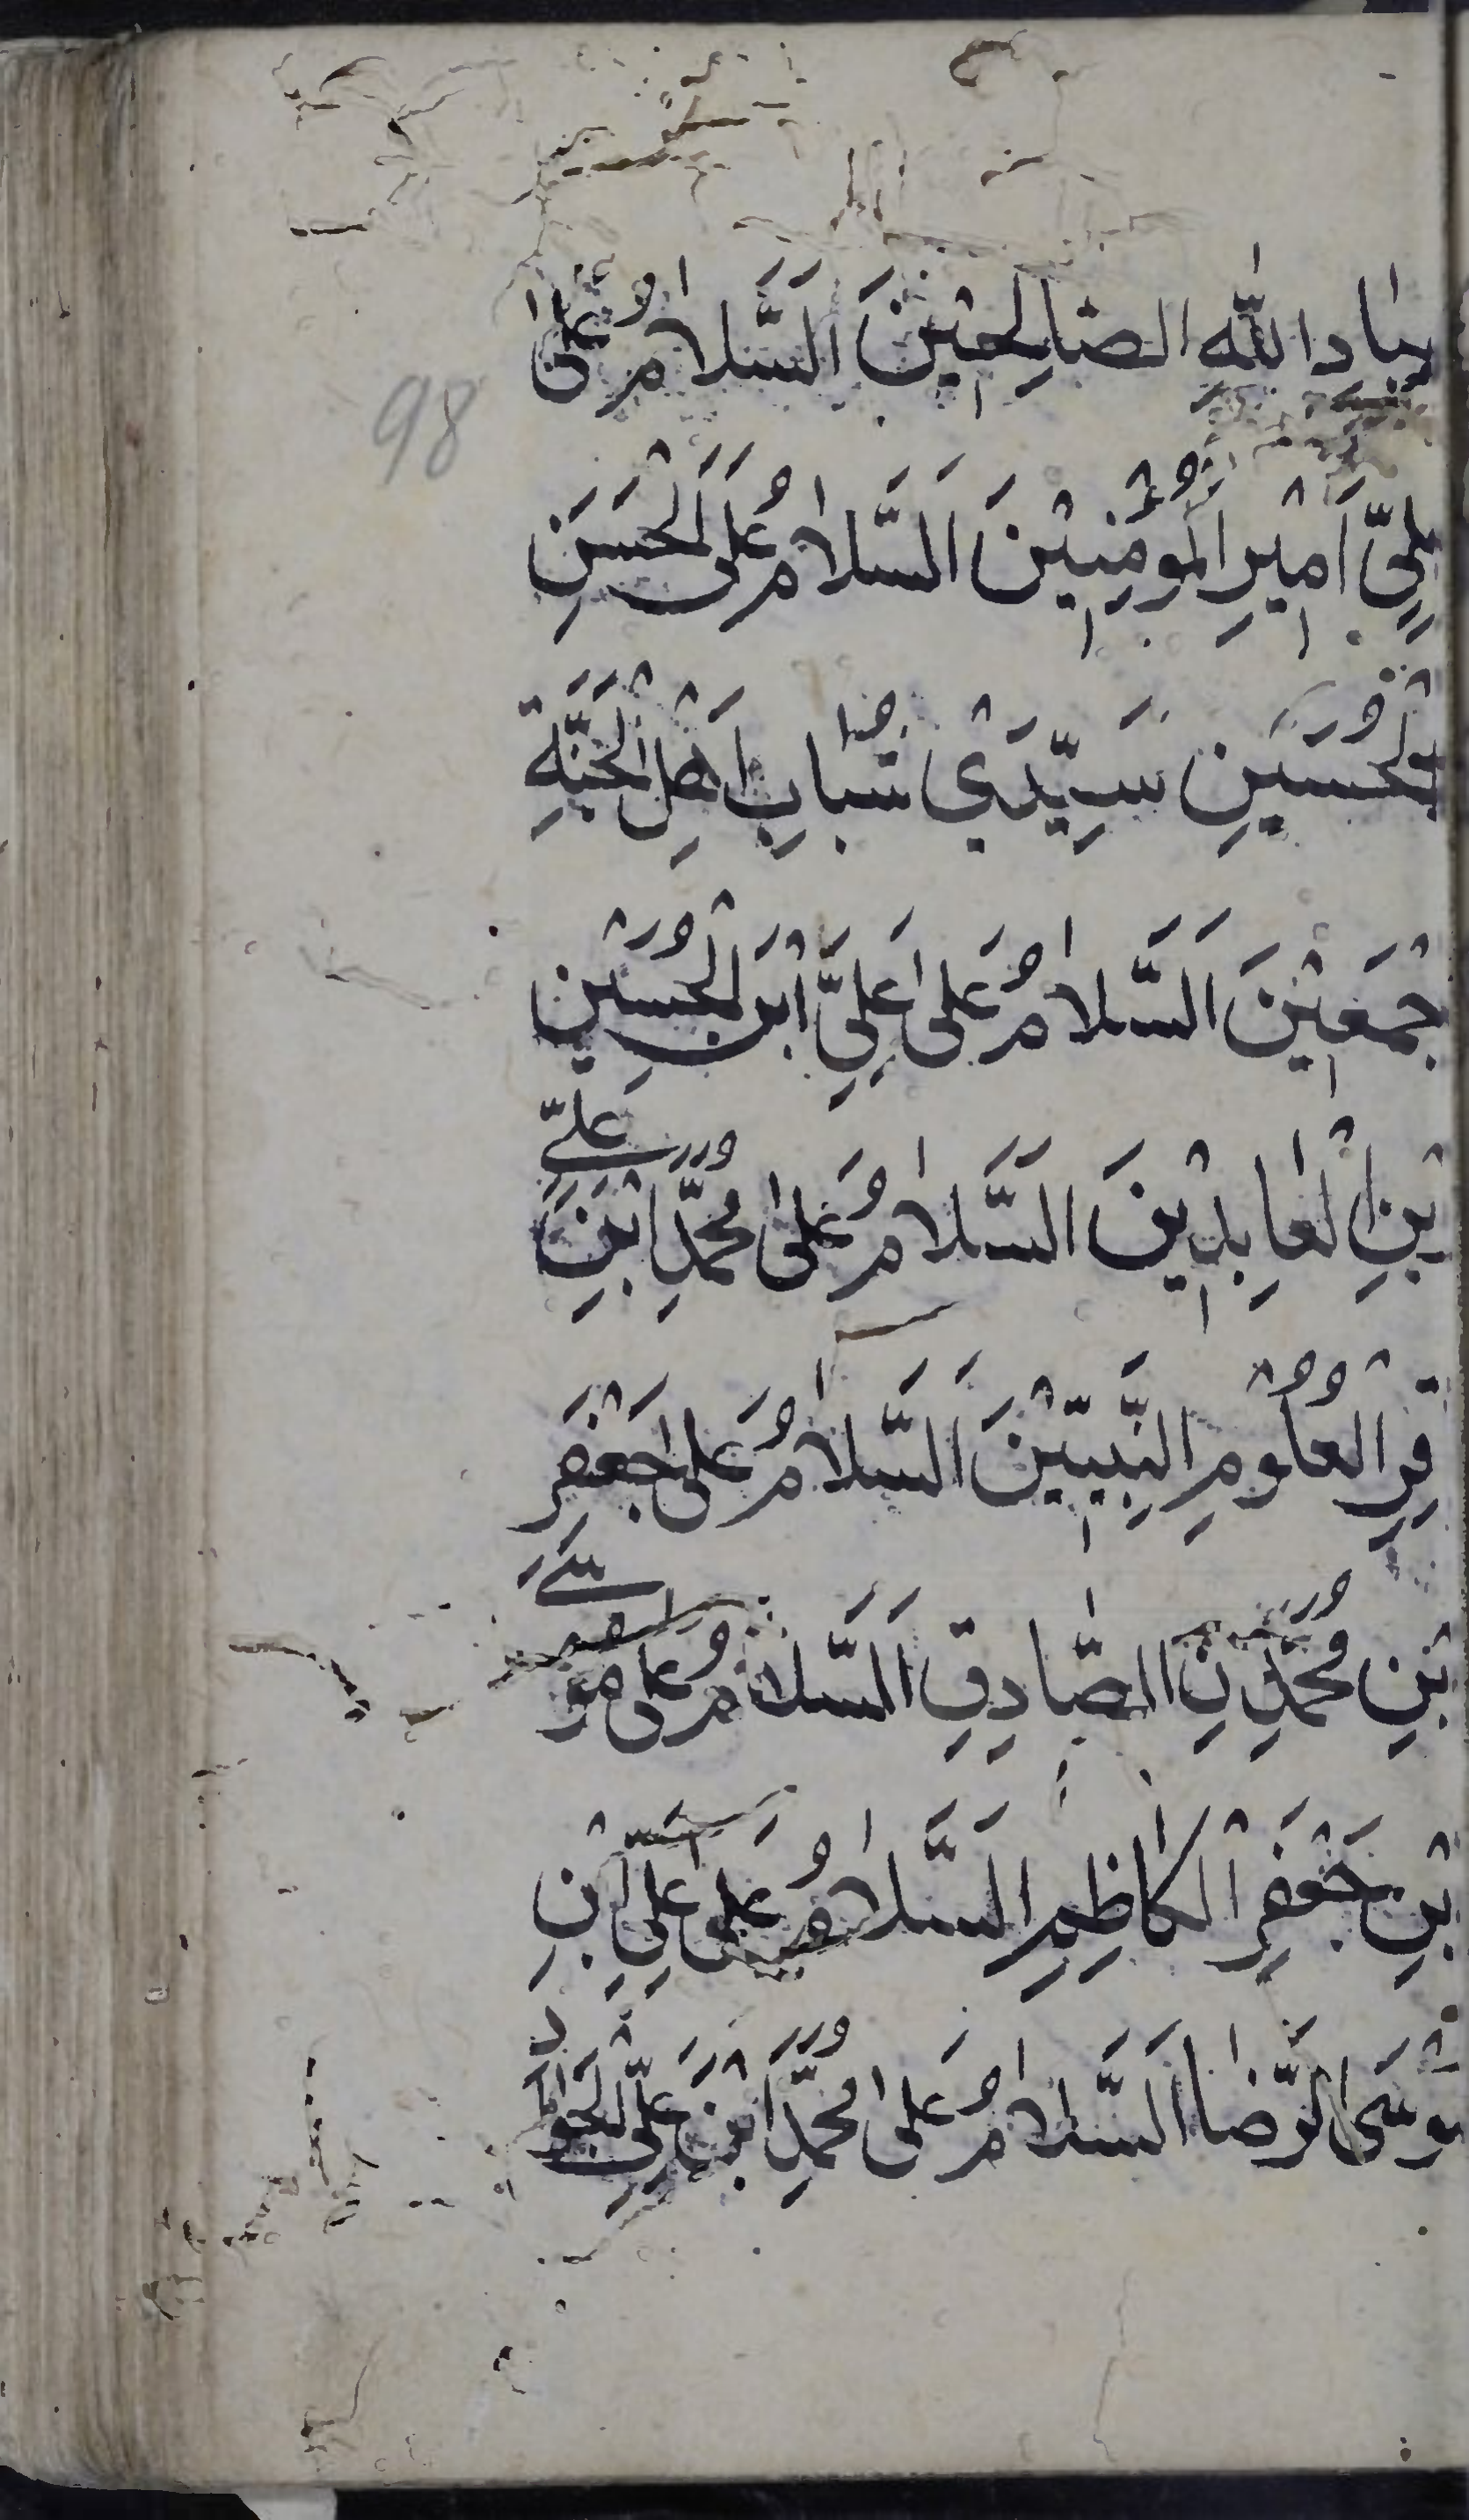 عِبَادِ اللّٰهِ الصَّالِحِيْنَ اَلسَّلَامُ عَلٰى
98
عَلِيٍّ اَمِيْرِ الْمُؤْمِنِيْنَ اَلسَّلَامُ عَلَى الْحَسَنِ
وَالْحُسَيْنِ سَيِّدَيْ شَبَابِ اَهْلِ الْجَنَّةِ
جْمَعِيْنَ اَلسَّلَامُ عَلٰى عَلِيِّ ابْنِ الْحُسَيْنِ
يْنِ الْعَابِدِيْنَ اَلسَّلَامُ عَلٰى مُحَمَّدِ ابْنِ عَلِيٍّ
قِرِ الْعُلُوْمِ النَّبِيِّيْنَ اَلسَّلَامُ عَلٰى جَعْفَرِ
بْنِ مُحَمَّدِنِ الصَّادِقِ اَلسَّلَامُ عَلٰى مُوْسٰى
بْنِ جَعْفَرِ الْكَاظِمِ اَلسَّلَامُ عَلٰى عَلِيِّ ابْنِ
مُوْسَى الرِّضَا اَلسَّلَامُ عَلٰى مُحَمَّدِ ابْنِ عَلِيِّ الْجَوَادِ